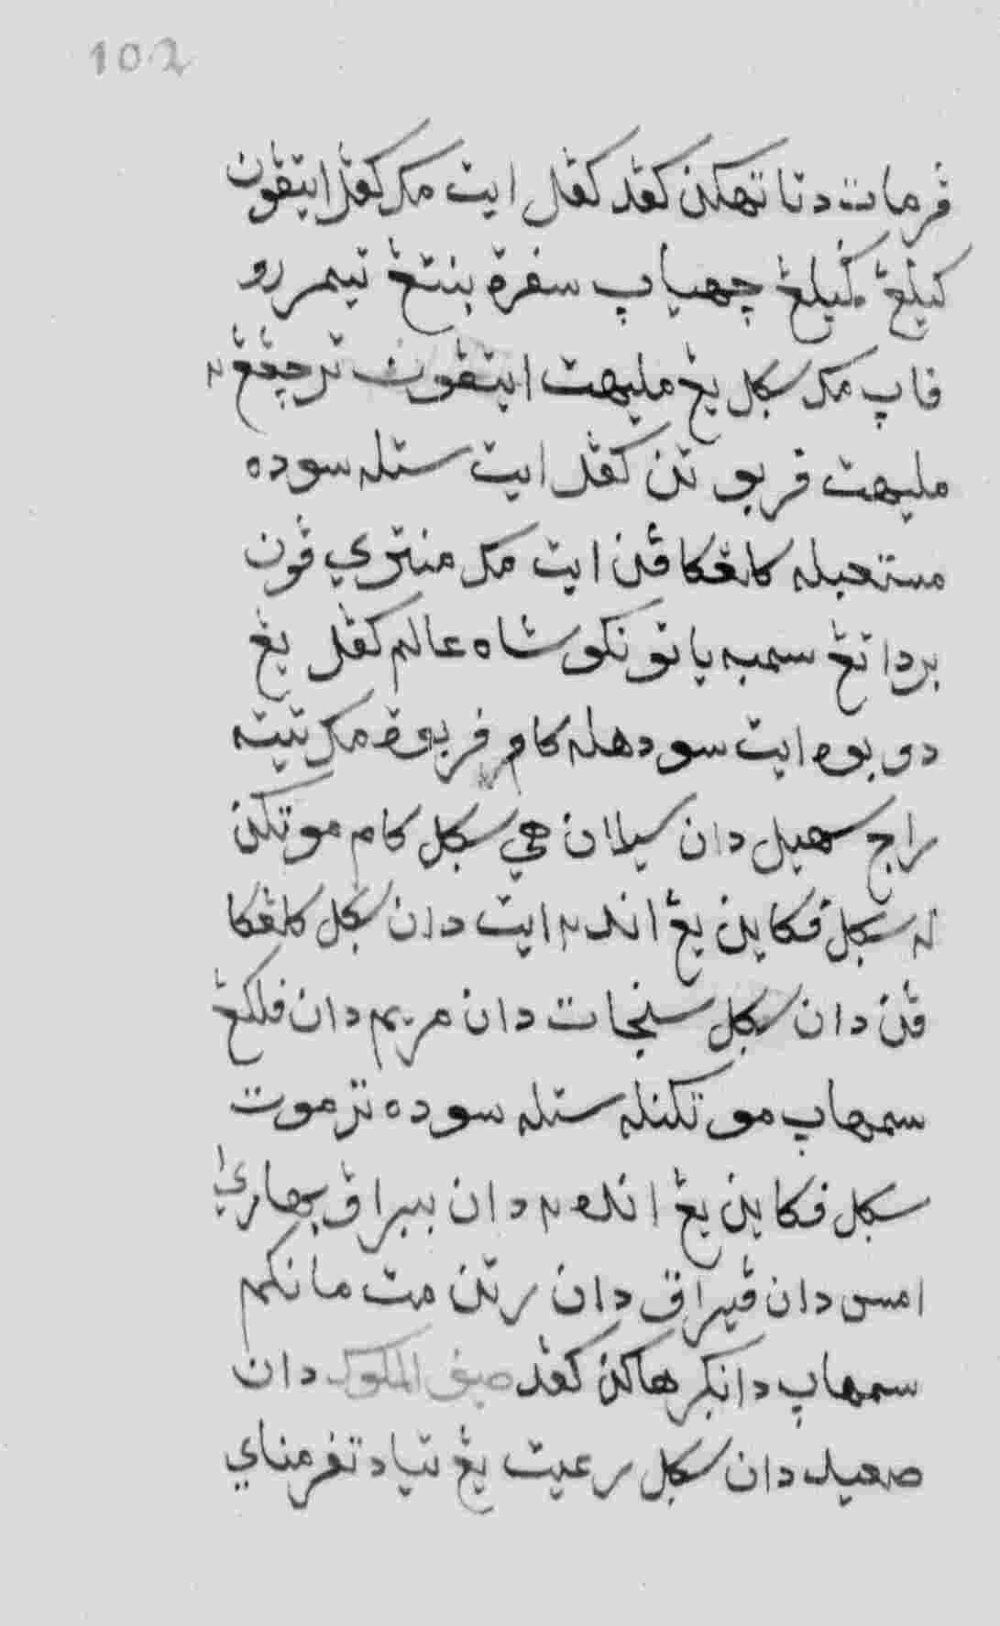 102
فرمات دتاتهکن کفد کفل ايت مک کفل ايتڤون
کيلڠ ݢميلڠ چهياڽ سفرة بنتڠ تيمر رو
فاڽ مک سکل يڠ مليهت ايتڤون ترچڠڠ٢
مليهت فربوتن کفل ايت ستله سوده
مستعبله کلڠکاڤن ايت مک منتري ڤون
برداتڠ سمبه ياتونکو شاه عالم کفل يڠ
دوبوه ايت سودهله کام فربوة مک تيته
راج سهيل دان سيلان هي سکل کام موتکن
له سکل فکاين يڠ انده٢ ايت دان سکل کلڠکا
ڤن دان سکل سنجات دان مريم دان فلکڠ
سمهاڽ موتکنله ستله سوده ترموت
سکل فکاين يڠ انده٢ دان ببراڤ بهاري٢
امس دان ڤيراق دان رتن مت مانکم
سمهاڽ دانکرهاکن کفد صيف الملوک دان
صعيد دان سکل رعيت يڠ تياد تفرمناي